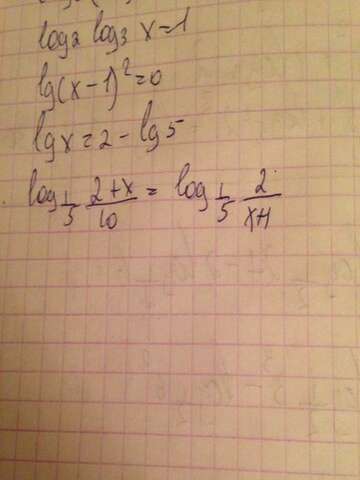 log₂ log₃ x=1
lg(x-1)²=0
lg x = 2 - lg 5
log_{1/5} (2+x)/10 = log_{1/5} 2/(x+1)